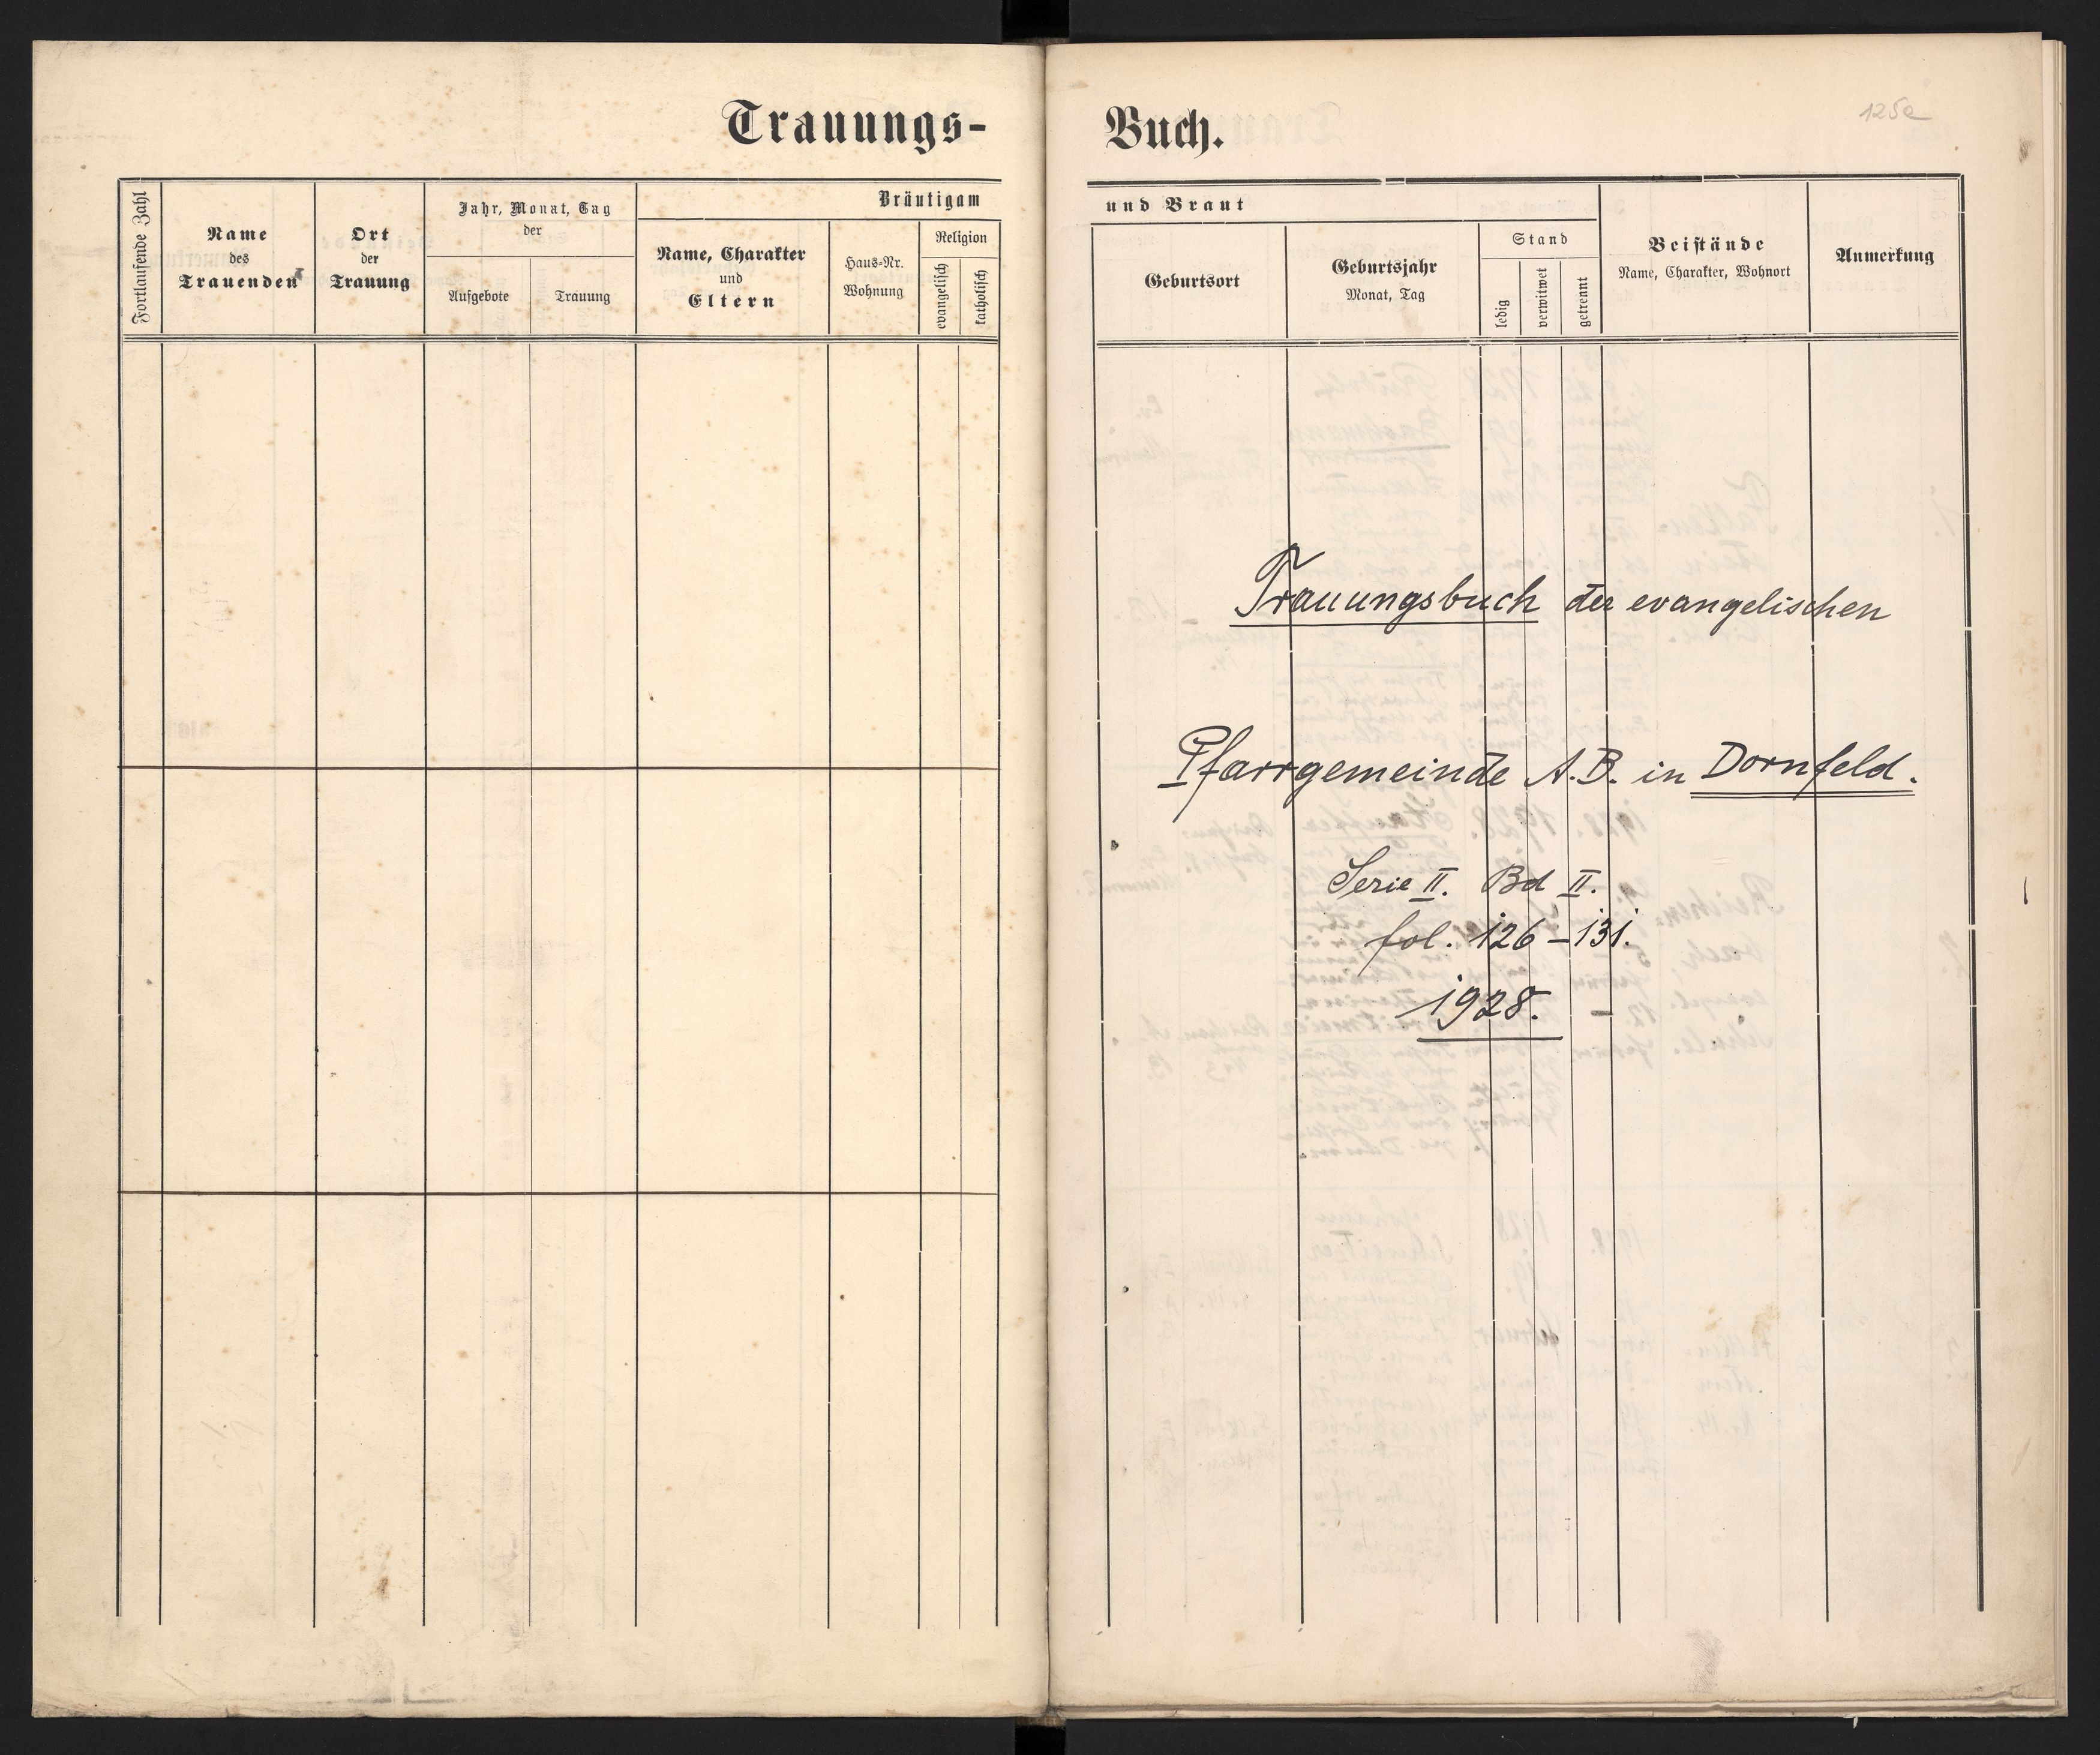 Trauungs-
Fortlaufende Zahl
Name
des
Trauenden
Ort
der
Trauung
Jahr, Monat, Tag
der
Aufgebote
Trauung
Bräutigam
Name, Charakter
und
Eltern
Haus-Nr.
Wohnung
Religion
evangelisch
katholisch
Buch.
125a
und Braut
Geburtsort
Geburtsjahr
Monat, Tag
Stand
ledig
verwitwet
getrennt
Beistände
Name, Charakter, Wohnort
Anmerkung
Trauungsbuch der evangelischen
Pfarrgemeinde A.B. in Dornfeld.
Serie II. Bd II.
fol. 126-131.
1928.